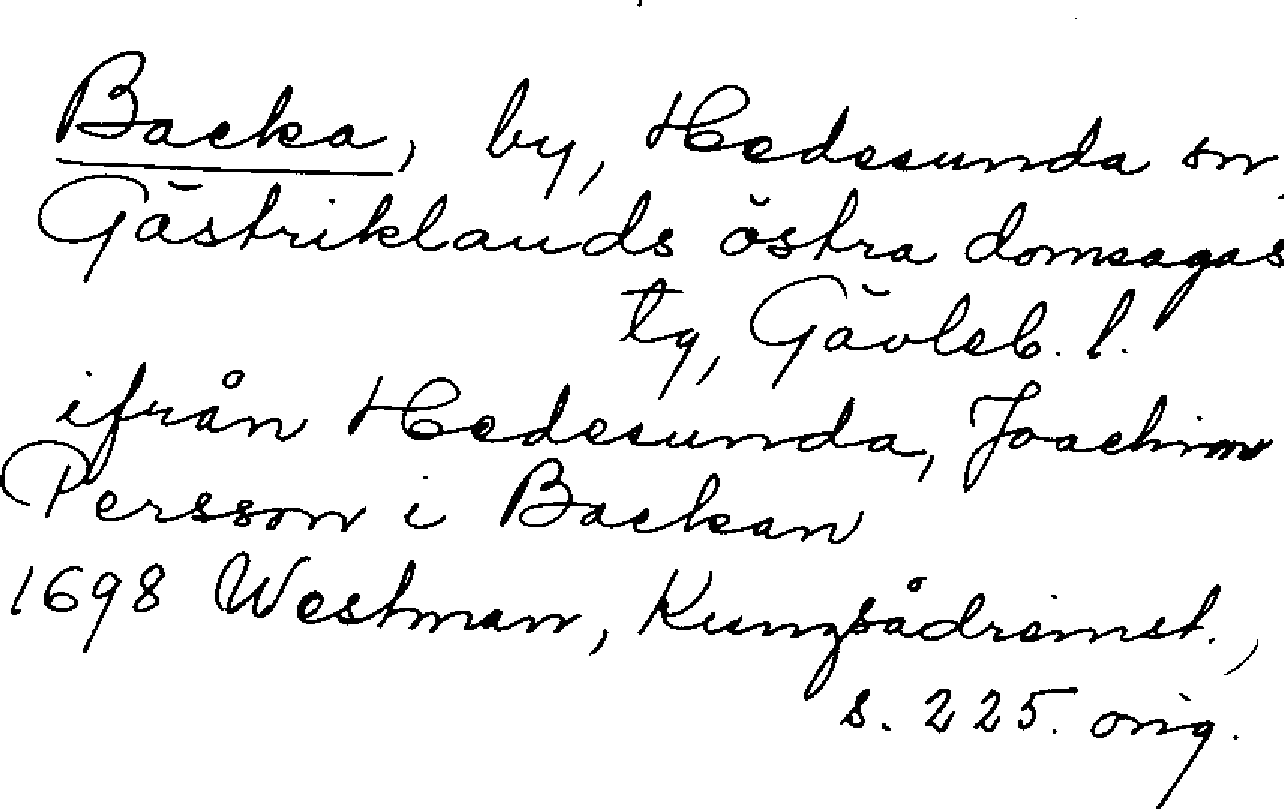 Backa, by, Hedesunda sn,
Gästriklands östra domsagas
tg, Gävleb. l.
ifrån Hedesunda, Joachim
Persson i Backan
1698 Westman, Kungsådreinst.,
s. 225. orig.